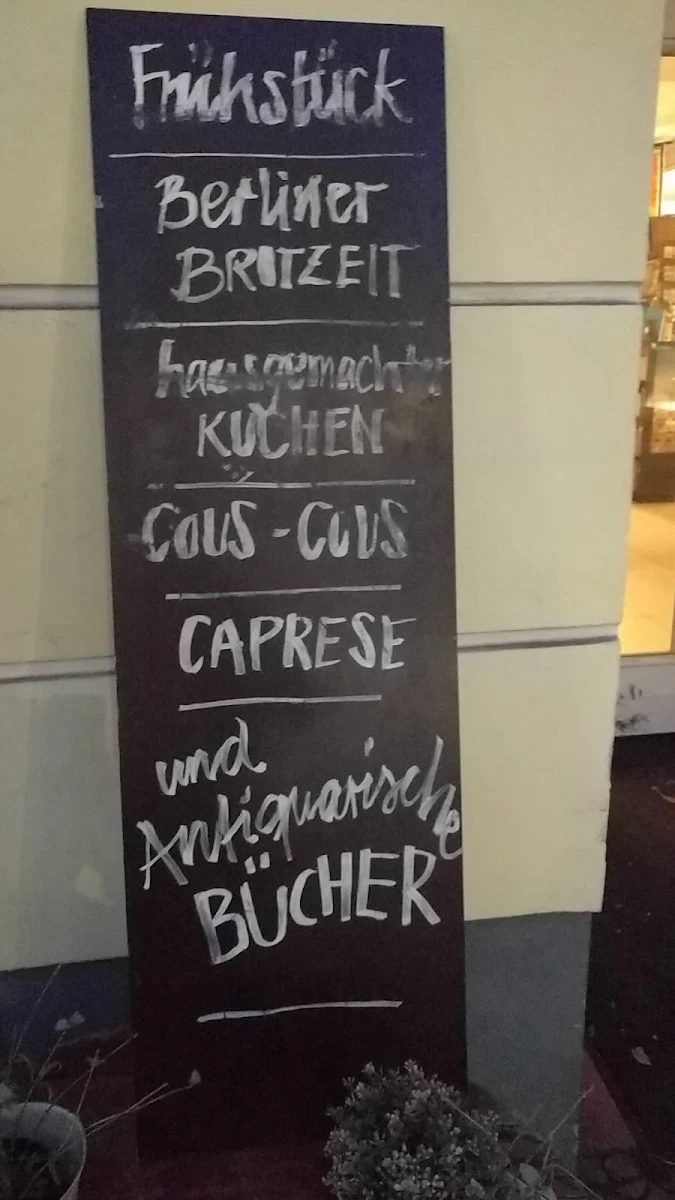 Frühstück
Berliner
BROTZEIT
hausgemachter
KUCHEN
COUS-COUS
CAPRESE
und
Antiquarische
BÜCHER